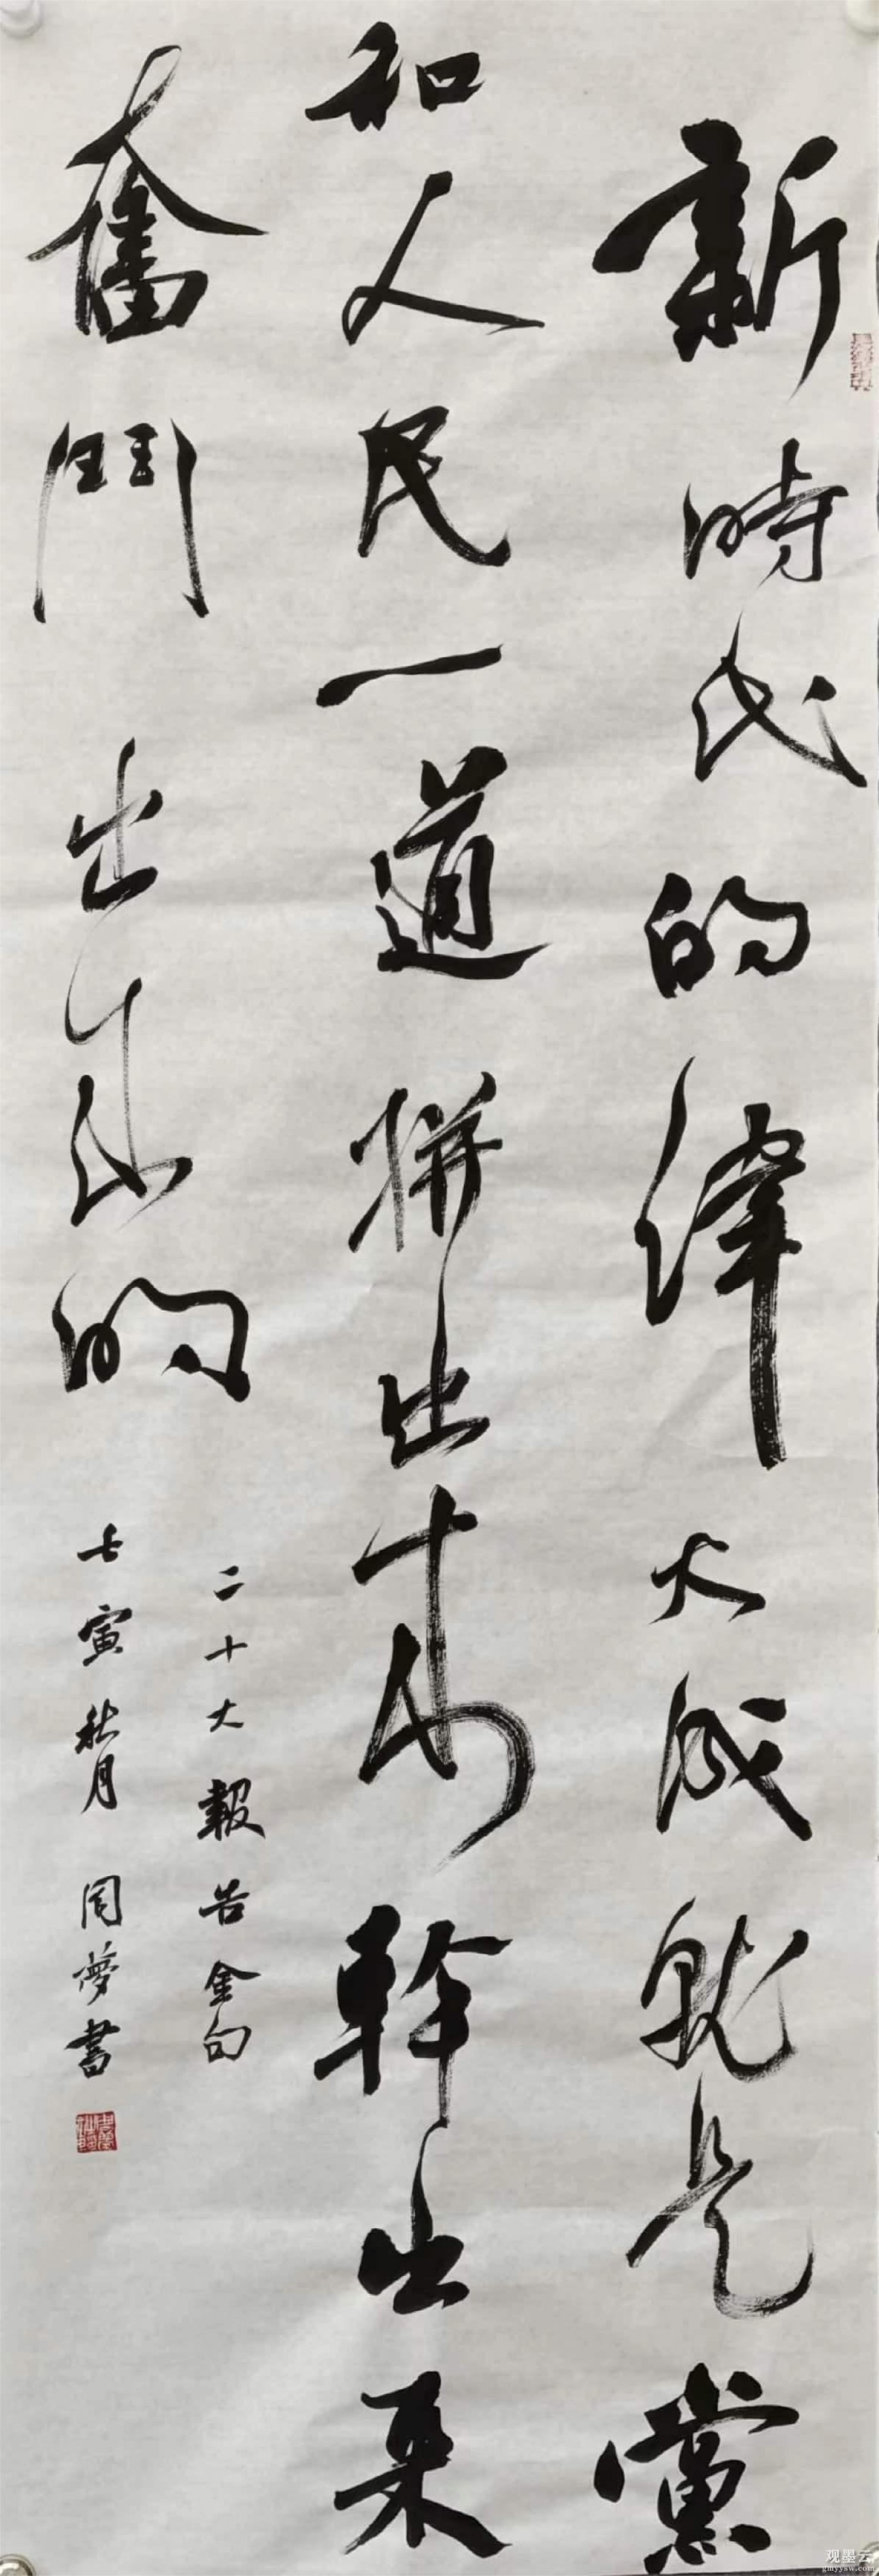 新時代的偉大成就是黨
和人民一道拼出来幹出来
奮鬥出来的
二十大報告金句
壬寅秋月 周夢書
观墨云
gmyysw.com